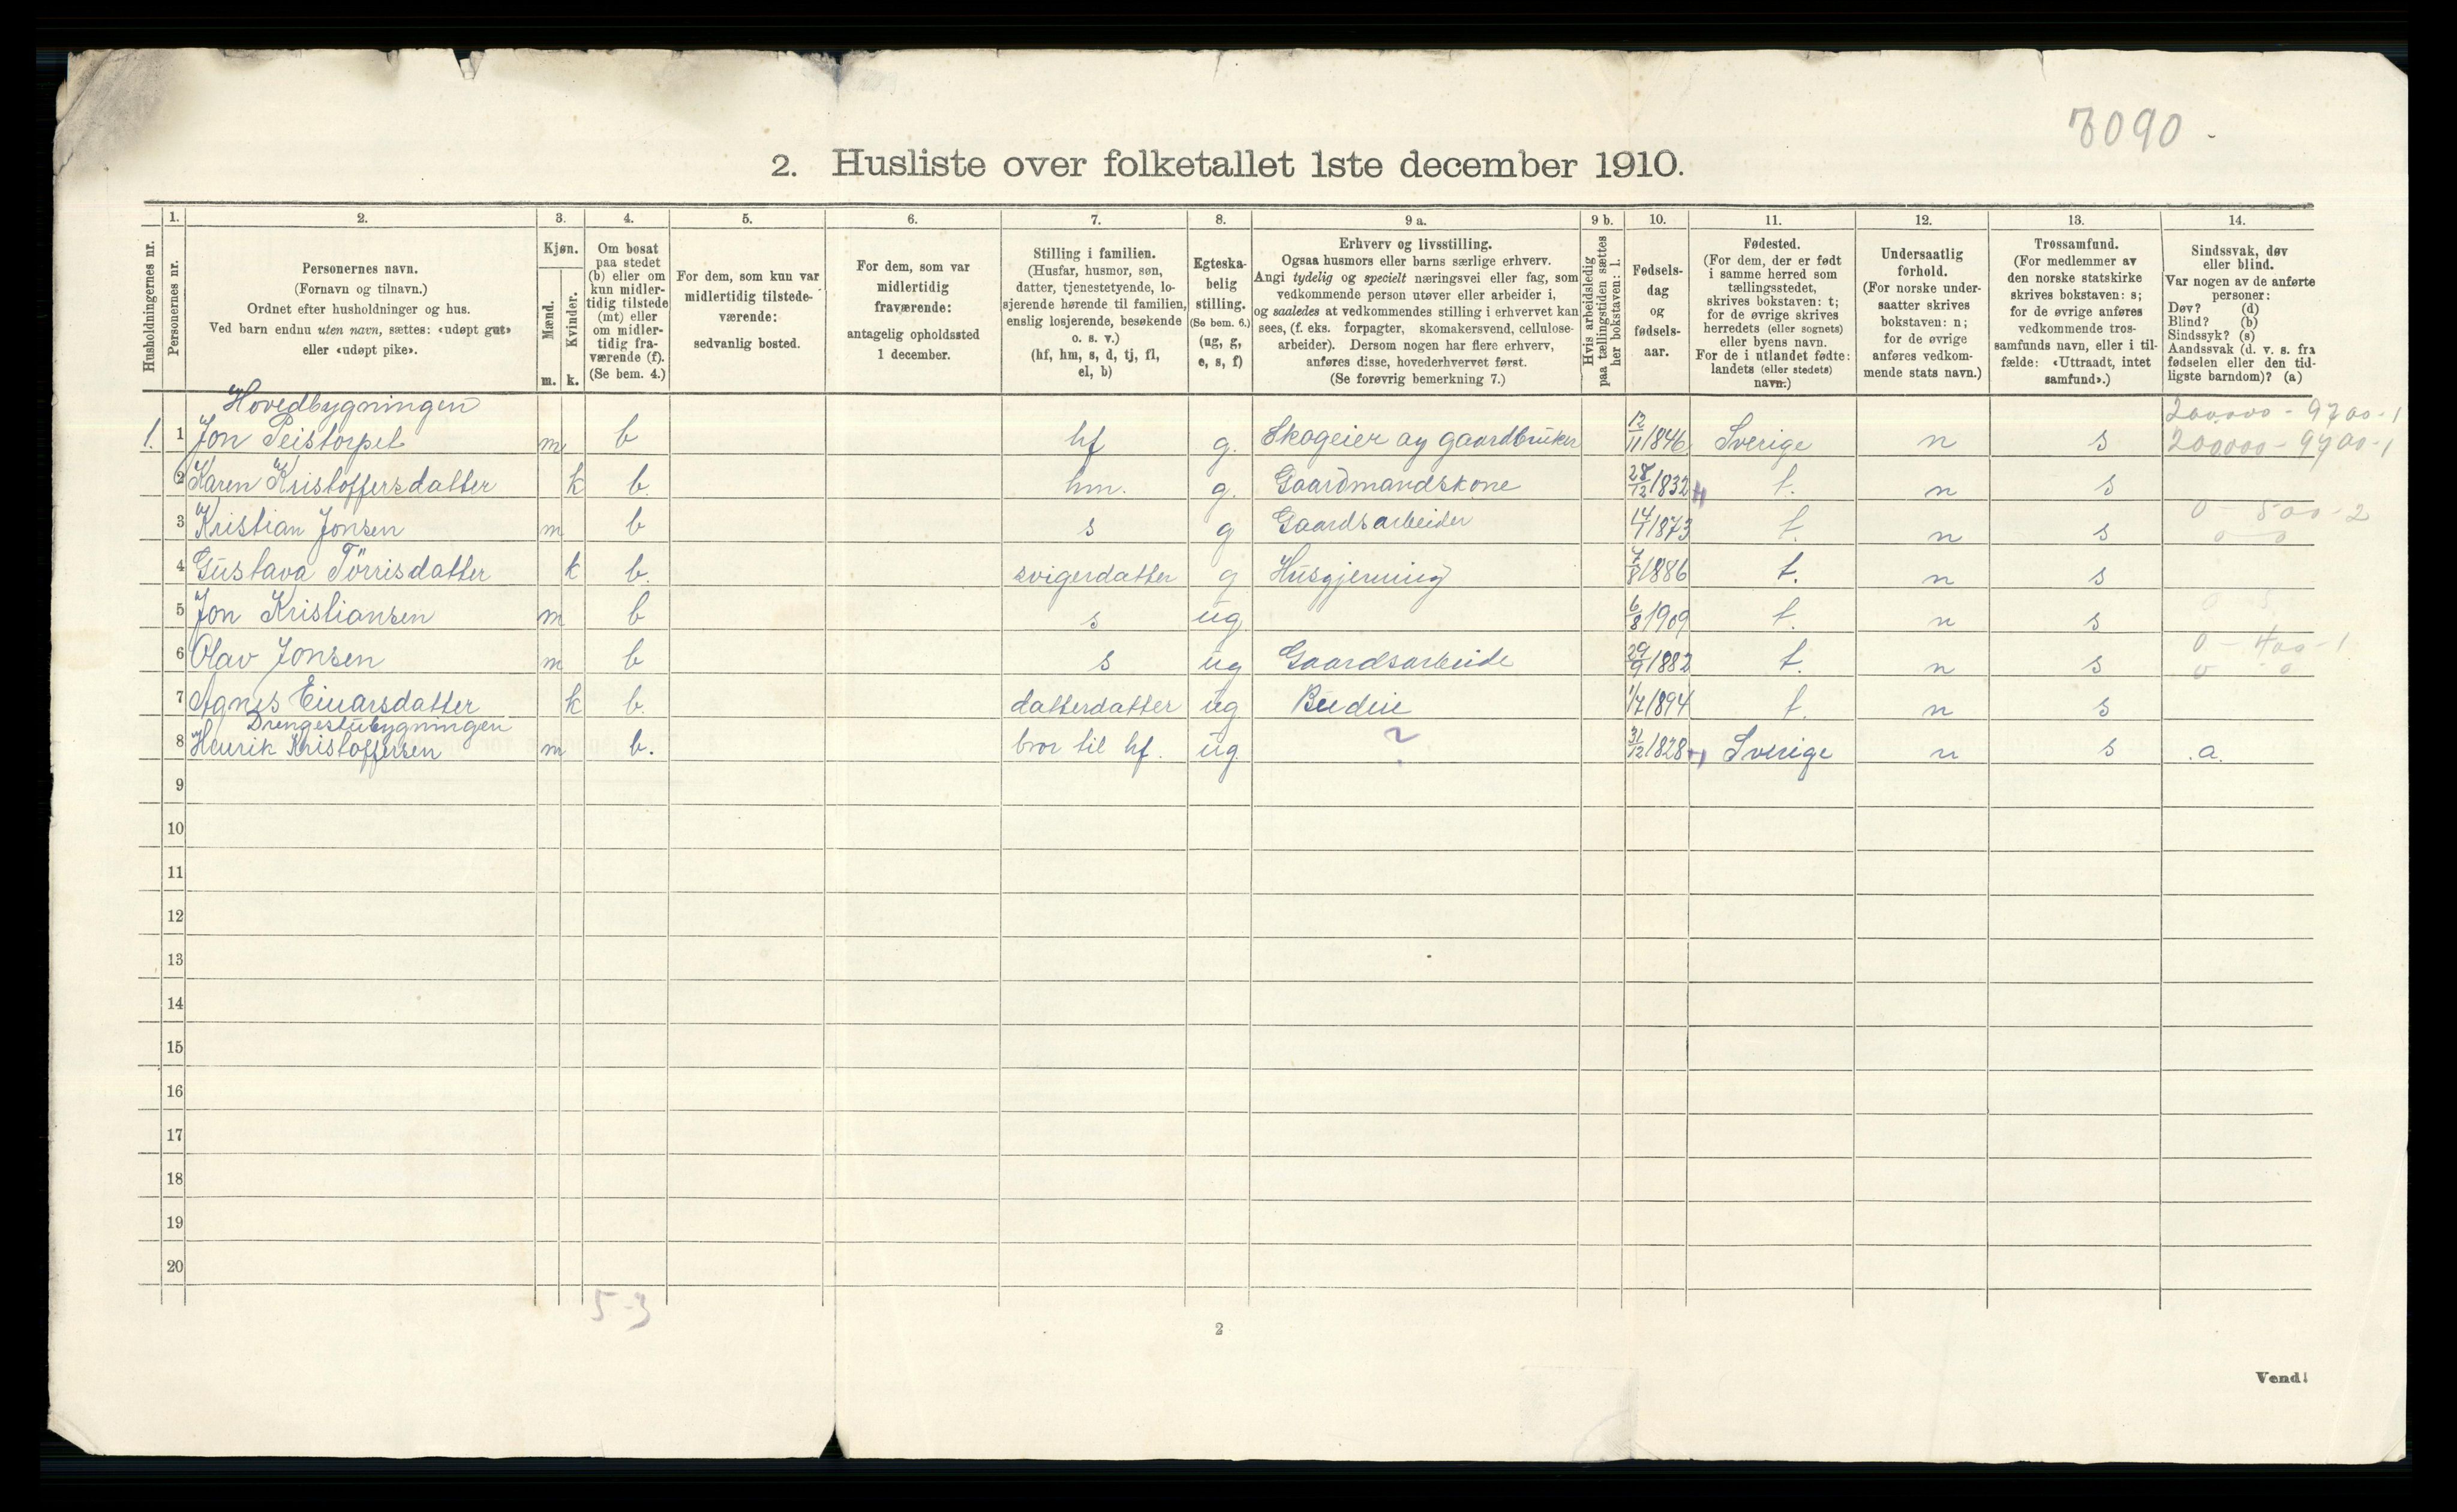 7090
2. Husliste over folketallet 1ste december 1910.
Husholdningernes nr.
1.
Personernes nr.
2.
Personernes navn.
(Fornavn og tilnavn.)
Ordnet efter husholdninger og hus.
Ved barn endnu uten navn, sættes: «udøpt gut»
eller «udøpt pike».
3.
Kjøn.
Mænd.
m.
Kvinder.
k.
4.
Om bosat
paa stedet
(b) eller om
kun midler-
tidig tilstede
(mt) eller
om midler-
tidig fra-
værende (f).
(Se bem. 4.)
5.
For dem, som kun var
midlertidig tilstede-
værende:
sedvanlig bosted.
6.
For dem, som var
midlertidig
fraværende:
antagelig opholdssted
1 december.
7.
Stilling i familien.
(Husfar, husmor, søn,
datter, tjenestetyende, lo-
sjerende hørende til familien,
enslig losjerende, besøkende
o. s. v.)
(hf, hm, s, d, tj, fl,
el, b)
8.
Egteska-
belig
stilling.
(Se bem. 6.)
(ug, g,
e, s, f)
9 a.
Erhverv og livsstilling.
Ogsaa husmors eller barns særlige erhverv.
Angi tydelig og specielt næringsvei eller fag, som
vedkommende person utøver eller arbeider i,
og saaledes at vedkommendes stilling i erhvervet kan
sees, (f. eks. forpagter, skomakersvend, cellulose-
arbeider). Dersom nogen har flere erhverv,
anføres disse, hovederhvervet først.
(Se forøvrig bemerkning 7.)
9 b.
Hvis arbeidsledig
paa tællingstiden sættes
her bokstaven: l.
10.
Fødsels-
dag
og
fødsels-
aar.
11.
Fødested.
(For dem, der er født
i samme herred som
tællingsstedet,
skrives bokstaven: t;
for de øvrige skrives
herredets (eller sognets)
eller byens navn.
For de i utlandet fødte:
landets (eller stedets)
navn.)
12.
Undersaatlig
forhold.
(For norske under-
saatter skrives
bokstaven: n;
for de øvrige
anføres vedkom-
mende stats navn.)
13.
Trossamfund.
(For medlemmer av
den norske statskirke
skrives bokstaven: s;
for de øvrige anføres
vedkommende tros-
samfunds navn, eller i til-
fælde: «Uttraadt, intet
samfund».)
14.
Sindssvak, døv
eller blind.
Var nogen av de anførte
personer:
Døv? (d)
Blind? (b)
Sindssyk? (s)
Aandssvak (d. v. s. fra
fødselen eller den tid-
ligste barndom)? (a)
Hovedbygningen
200000 - 9700 - 1
1. 1 Jon Peistorpet m b hf g. Skogeier og gaardbruker 12/11 1846 Sverige n s 200000 - 9700 - 1
2 Karen Kristoffersdatter k b. hm. g. Gaardmandskone 28/12 1832 t. n s
0 - 500 - 2
3 Kristian Jonsen m b s g Gaardsarbeider 14/1 1873 t. n s 0 0
4 Gustava Törrisdatter k b. svigerdatter g Husgjerning 7/8 1886 t. n s
5 Jon Kristiansen m b s ug 6/8 1909 t. n s
0 - 400 - 1
6 Olav Jonsen m b s ug Gaardsarbeide 29/9 1882 t. n s 0 0
7 Agnes Einarsdatter k b. datterdatter ug Budeie 1/7 1894 t. n s
Drengestubygningen
8 Henrik Kristoffersen m b. bror til hf. ug. ? 31/12 1828 Sverige n s a.
9
10
11
12
13
14
15
16
17
18
19
20
5-3
2
Vend!